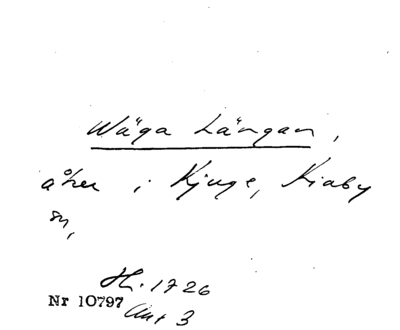 Wäga Längan,
åker i Kjuge, Kiaby
sn,
H. 1726
Nr 10797
Akt 3